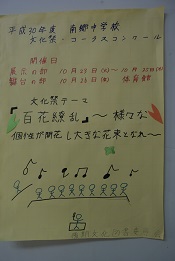 平成30年度 南郷中学校
文化祭・コーラスコンクール
開催日
展示の部 10月23日(火)～10月
舞台の部 10月28日(日) 体育館
文化祭テーマ
『百花繚乱』～様々な
個性が開花し大きな花束となれ～